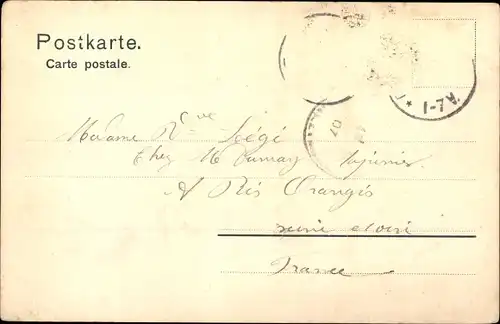 Postkarte.
Carte postale.
1-7V.
07
Madame
Chez M
A Ris Orangis
Seine et oise
France